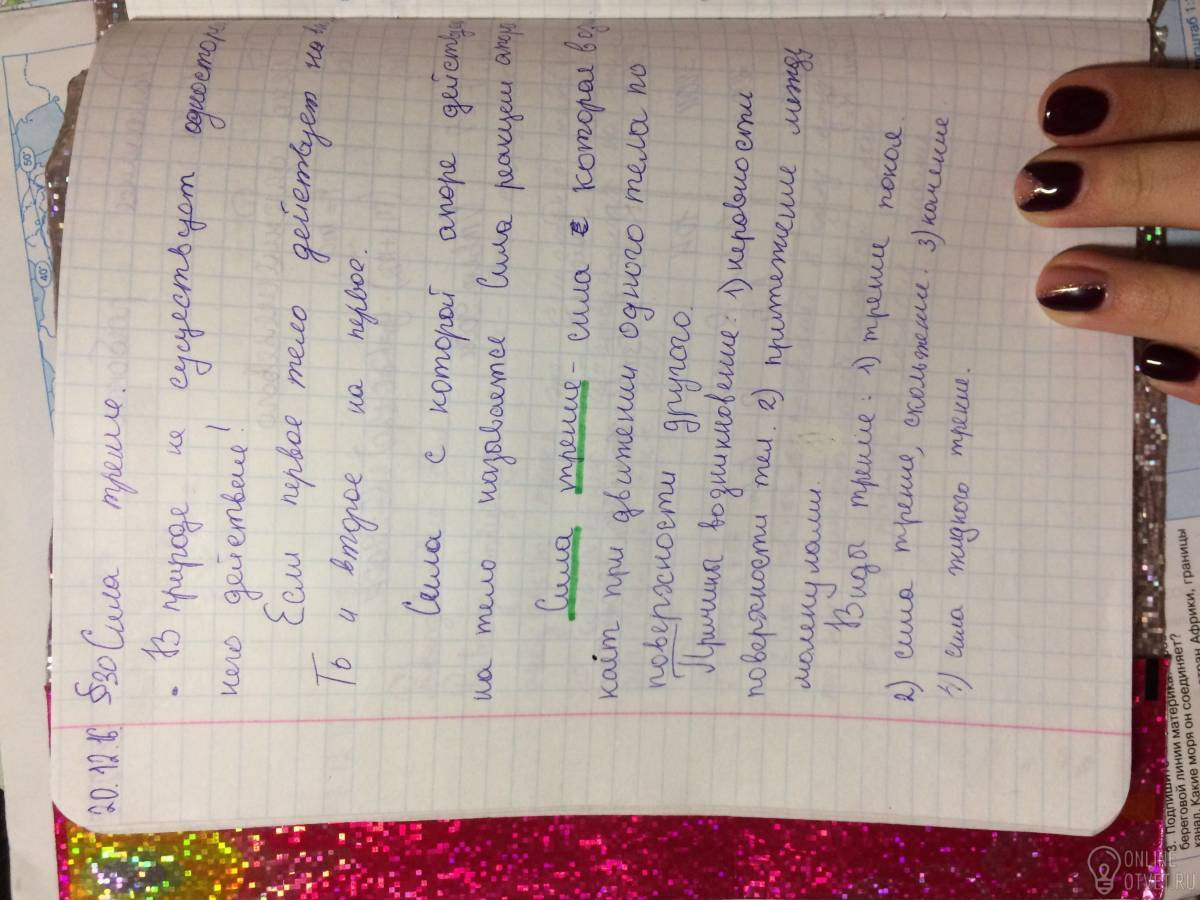 20.12.16 §30 Сила трение.
• В природе не существует односторо
него действие!
Если первое тело действует на в
То и второе на первое.
Сила с которой апоре действу
на тело называется Сила реакции апор
Сила трение - сила с которая воз
кает при движении одного тела по
поверхности другого.
Причины возникновение: 1) неровности
поверхности тел. 2) притежение между
молекулами.
Виды трение: 1) трение покоя.
2) сила трение, скольжение. 3) качение
4) сила жидкого трение.
50°
40°
3. Подпишите материка
береговой линии материка
канал. Какие моря он соединяет?
стран Африки, границы
штаб 1:
ONLINE
OTVET.RU